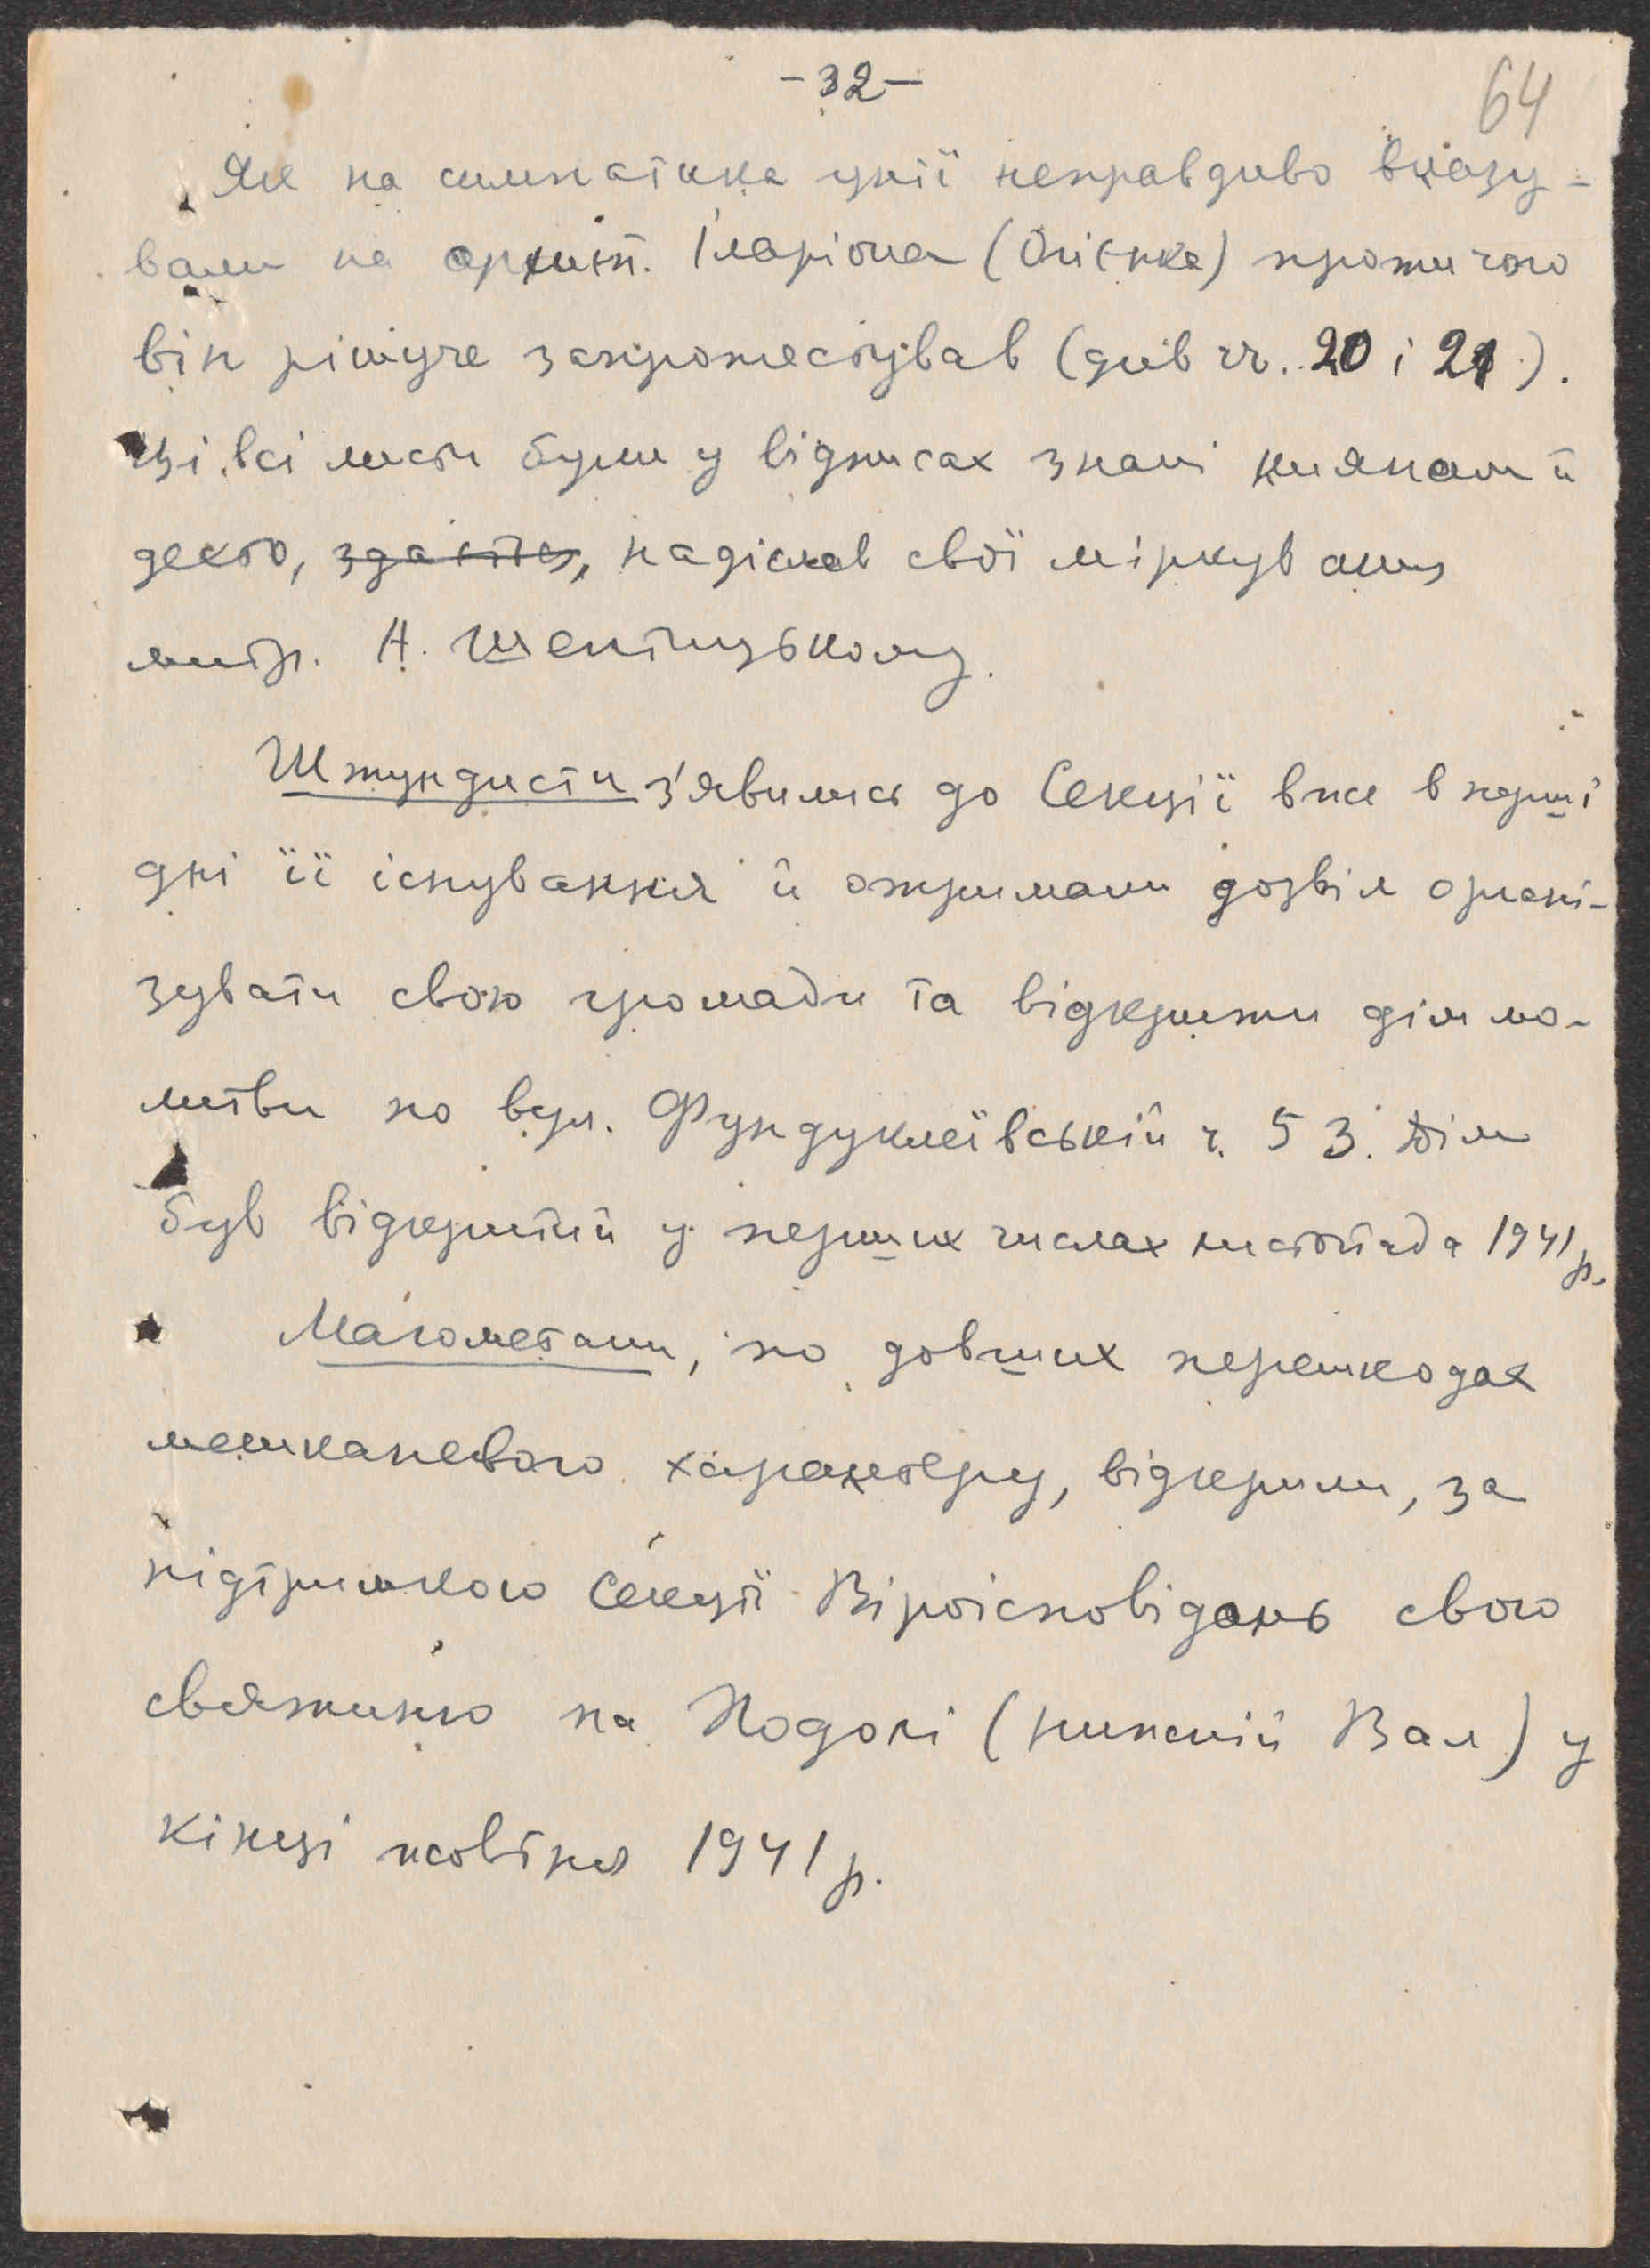 -32-
64
Як на симпатика унії неправдиво вказу-
вали на архиєп. Іларіона (Огієнка) проти чого
він рішуче запротестував (див чч. 20 і 21).
Ці всі листи були у відписах знані киянам й
дехто, здається, надіслав свої міркування
митр. А. Шептицькому.
Штундисти з'явились до Секції вже в перші
дні її існування й отримали дозвіл органі-
зувати свою громади та відкрити дім мо-
литви по вул. Фундуклеївській ч. 53. Дім
був відкритий у перших числах листопада 1941 р.
Магометани, по довших перешкодах
мешканевого характеру, відкрили, за
підтримкою Секції Віроісповідань свою
святиню на Подолі (нижній Вал) у
кінці жовтня 1941 р.